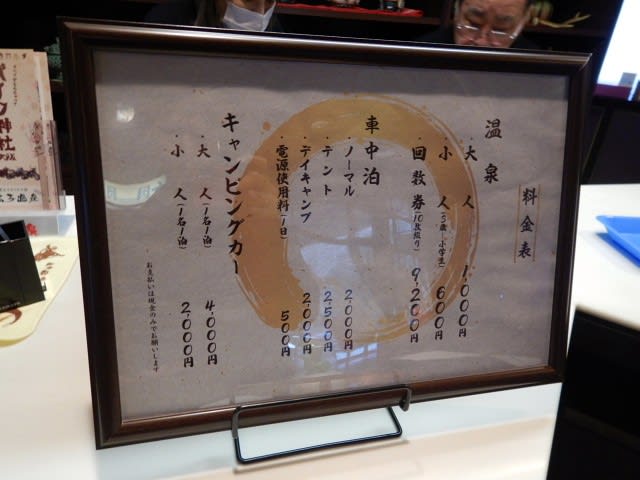 料金表
温泉
・大人 1,000円
・小人(3歳~小学生) 600円
・回数券(10枚綴り) 9,200円
車中泊
・ノーマル 2,000円
・テント 2,500円
・デイキャンプ 2,000円
・電源使用料(1日) 500円
キャンピングカー
・大人(1名1泊) 4,000円
・小人(1名1泊) 2,000円
お支払いは現金のみでお願いします
神社